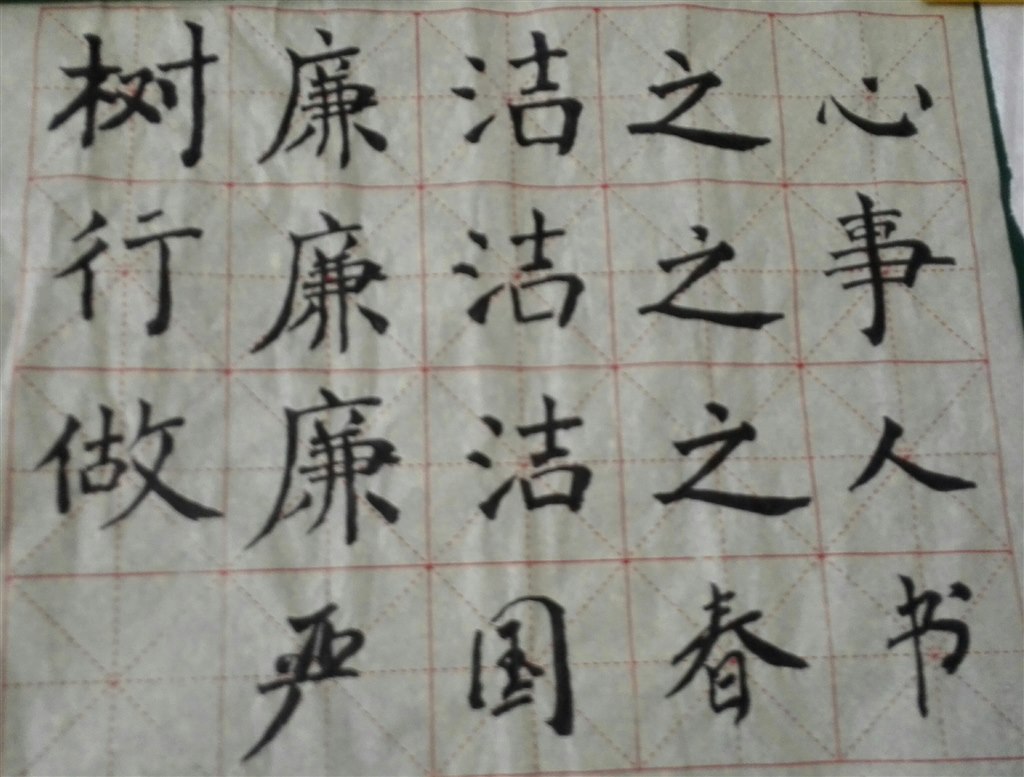 树廉洁之心
行廉洁之事
做廉洁之人
严国春书